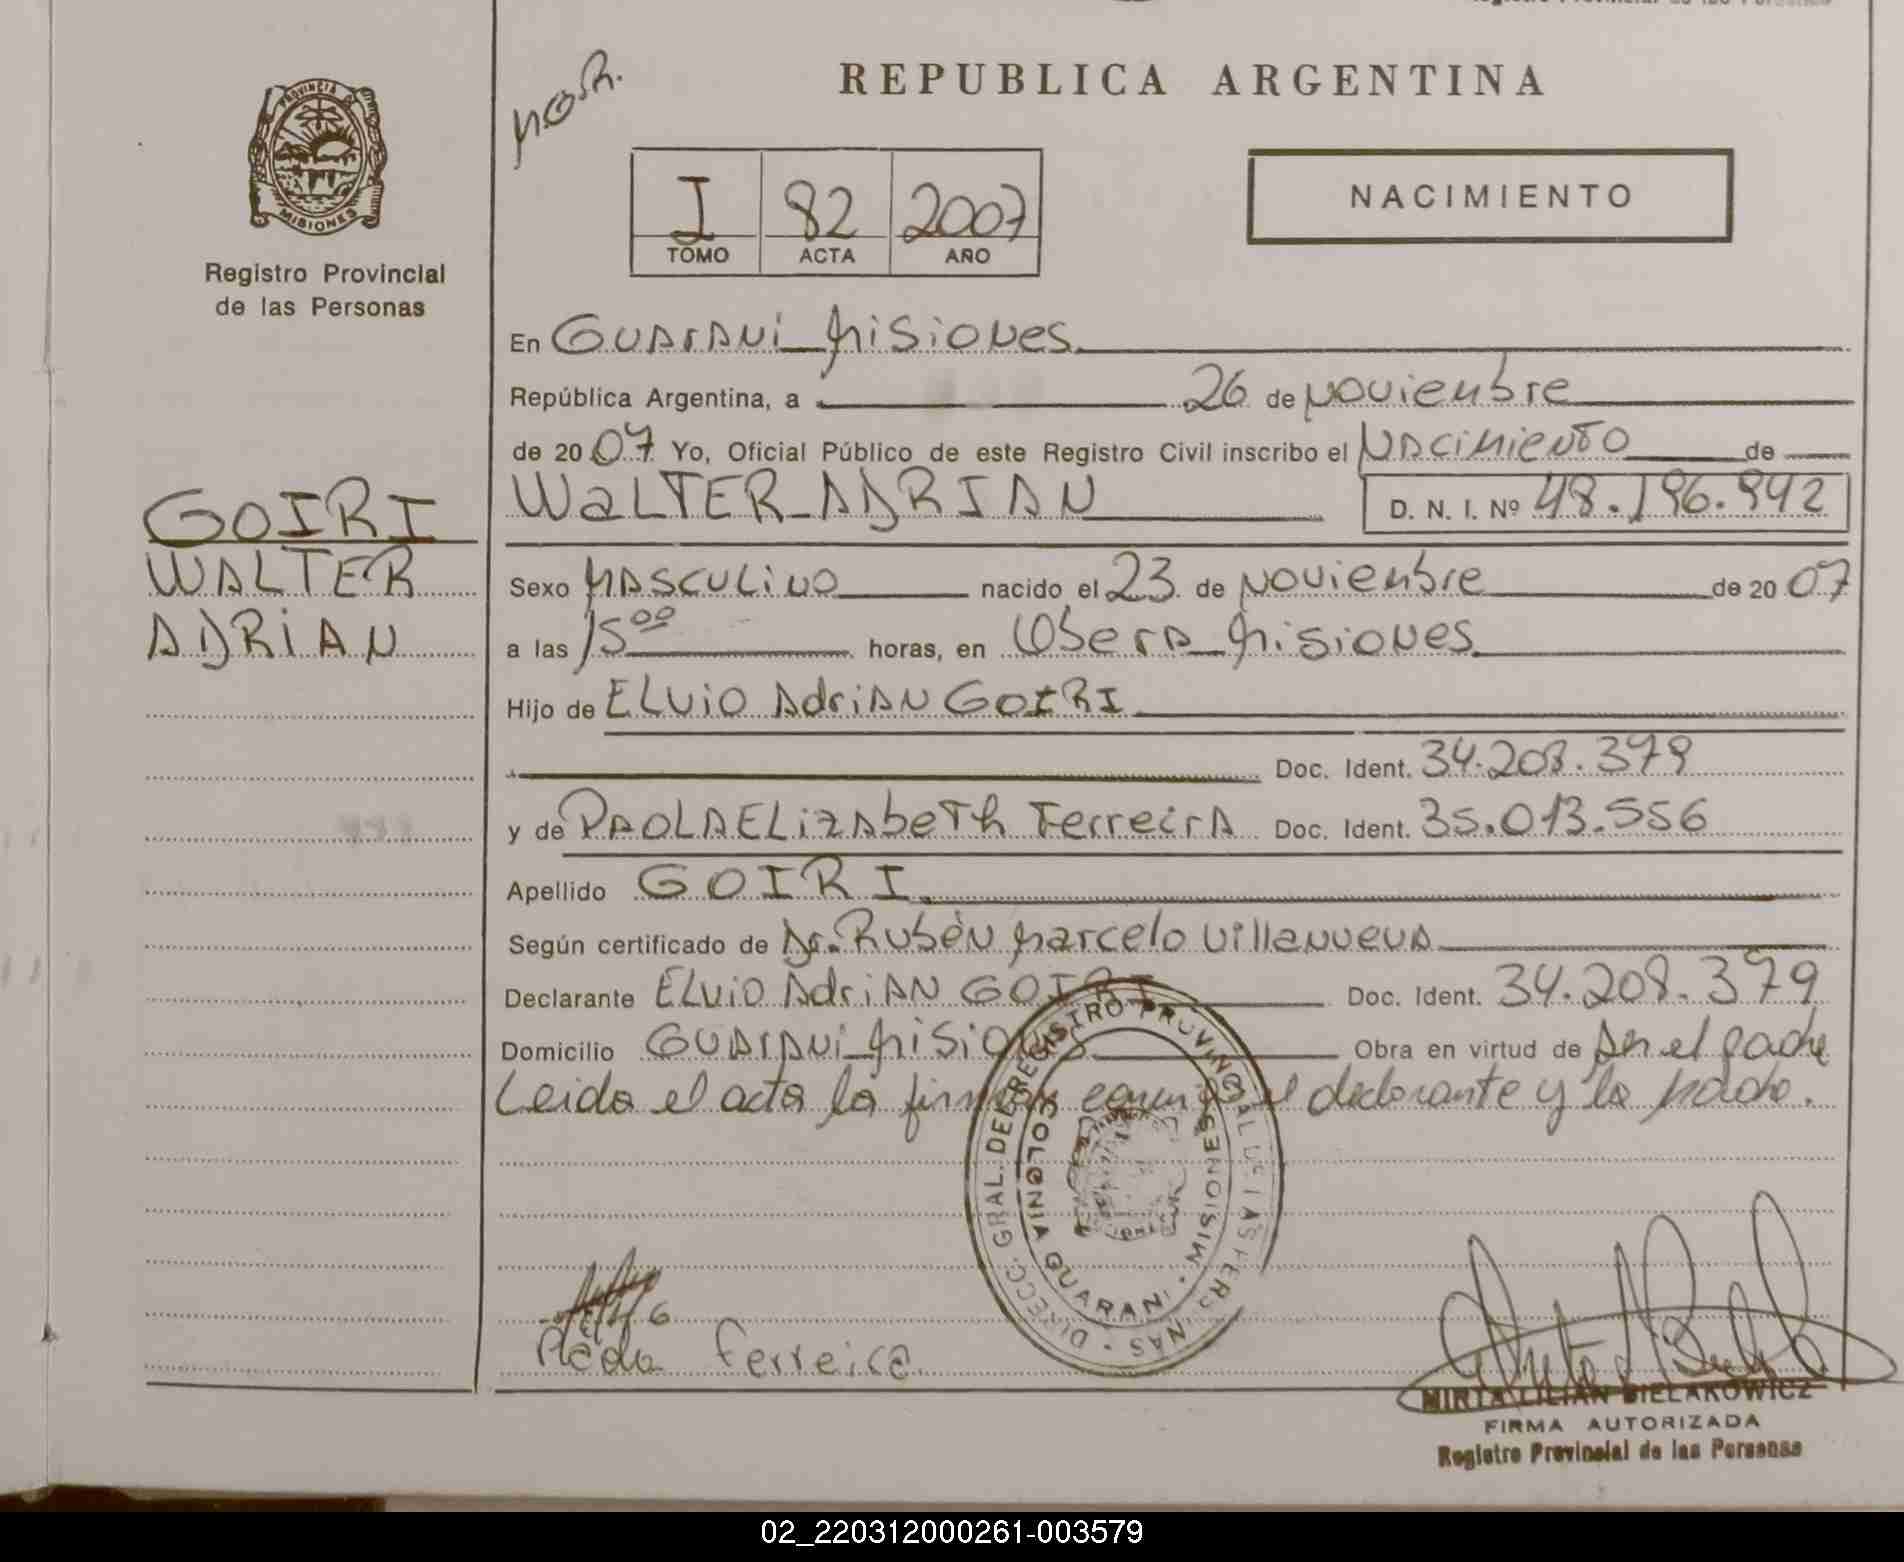 REPUBLICA ARGENTINA
PROVINCIA DE
MISIONES
Registro Provincial
de las Personas
I 82 2007
TOMO ACTA AÑO
NACIMIENTO
En GUArANi Misiones
República Argentina, a 26 de Noviembre
de 2007 Yo, Oficial Público de este Registro Civil inscribo el Nacimiento de
WaLTER ADRIAN D. N. I. Nº 48.196.992
GOIRI
WALTER
ADRiAN
Sexo MASCULiNO nacido el 23 de Noviembre de 2007
a las 15 00 horas, en Obera Misiones
Hijo de ELViO AdriAN GOIRI
Doc. Ident. 34.208.379
y de PAOLA ELizAbeTh Ferreira Doc. Ident. 35.013.556
Apellido GOIRI
Según certificado de Dr. Rubén Marcelo Villanueva
Declarante ELViO AdriAN GOIRI Doc. Ident. 34.208.379
Domicilio GUArANi Misiones Obra en virtud de Ser el padre
Leida el acta la firman el declarante y la madre.
DIRECC. GRAL. DEL REGISTRO PROVINCIAL DE LAS PERSONAS
COLONIA GUARANI - MISIONES
Paola Ferreira
MIRTA LILIAN BIELAKOWICZ
FIRMA AUTORIZADA
Registro Provincial de las Personas
02_220312000261-003579